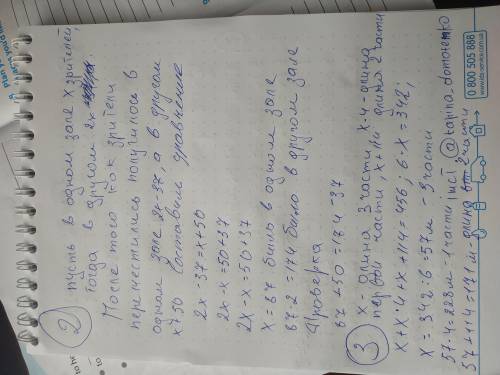 ② пусть в одном зале x зрителей,
тогда в другом 2x
После того как зрители
переместились получилось в
одном зале 2x-37, а в другом
x+50 Составим уравнение
2x-37=x+50
2x-x=50+37
2x-x=50+37
x=87 было в одном зале
87·2=174 было в другом зале
Проверка
87+50=174-37
③ x- длина 3 части x·4- длина
первой части, x+114 длина 2 части
x+x·4+x+114=456; 6·x=342;
x=342:6=57м - 3 части
57·4=228м - 1 части inst @tapina_domotenko
57+114=171м - длина 2 части
0 800 505 888